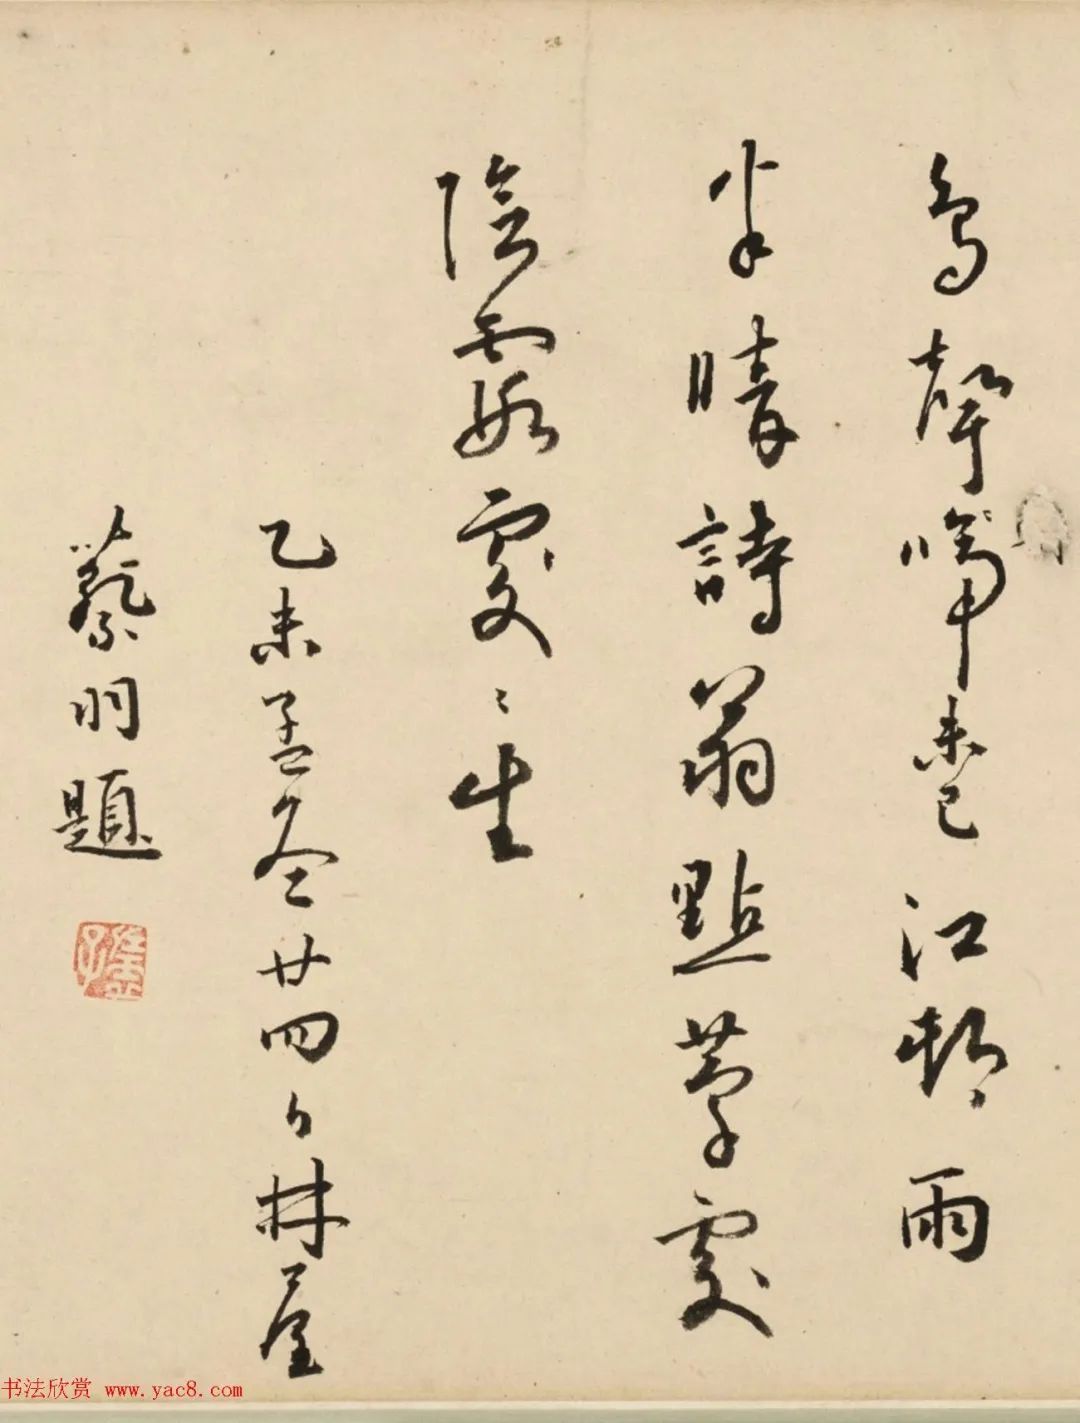 鳥聲啼未已江邨雨
半晴詩翁點筆處
陰霞處〻生
乙未孟冬廿四日林屋
蔡羽題
书法欣赏 www.yac8.com